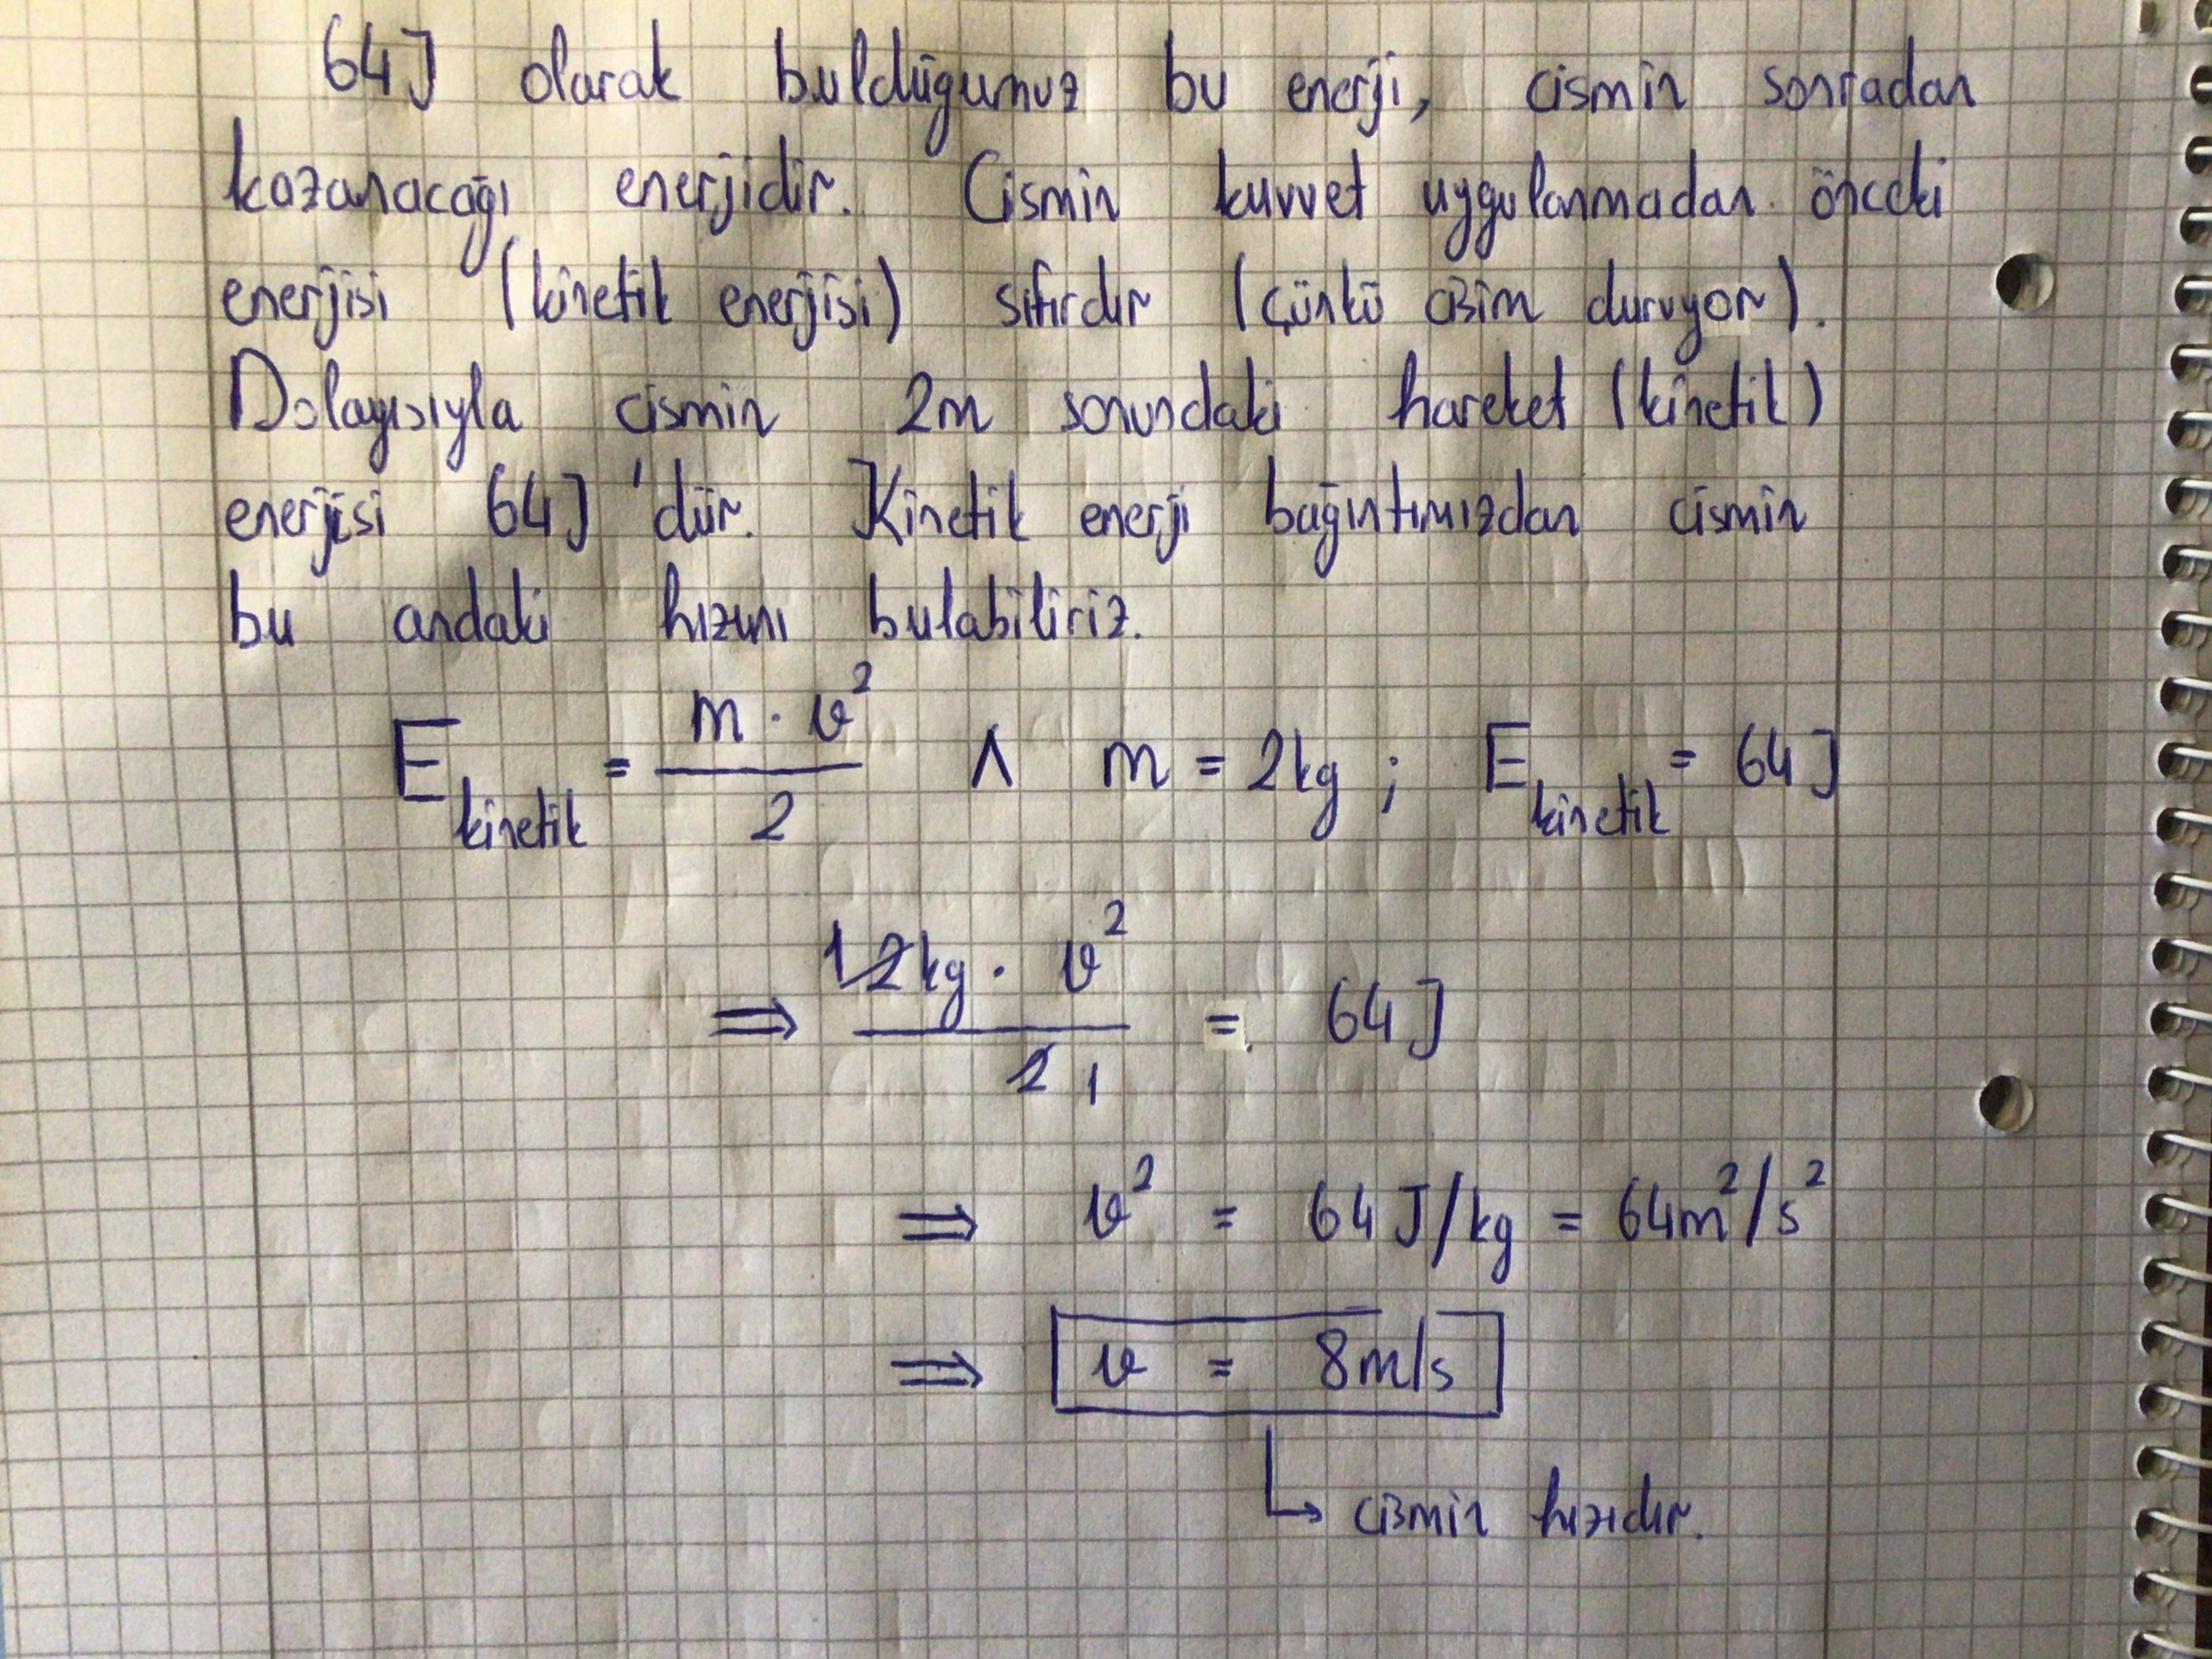 64J olarak bulduğumuz bu enerji, cismin sonradan
kazanacağı enerjidir. Cismin kuvvet uygulanmadan önceki
enerjisi (kinetik enerjisi) sıfırdır (çünkü cisim duruyor).
Dolayısıyla cismin 2m sonundaki hareket (kinetik)
enerjisi 64J 'dür. Kinetik enerji bağıntımızdan cismin
bu andaki hızını bulabiliriz.
E_kinetik = (m · v²) / 2 ∧ m = 2kg ; E_kinetik = 64J
⇒ (1 2kg · v²) / (2 1) = 64J
⇒ v² = 64 J/kg = 64m²/s²
⇒ v = 8m/s
↳ cismin hızıdır.